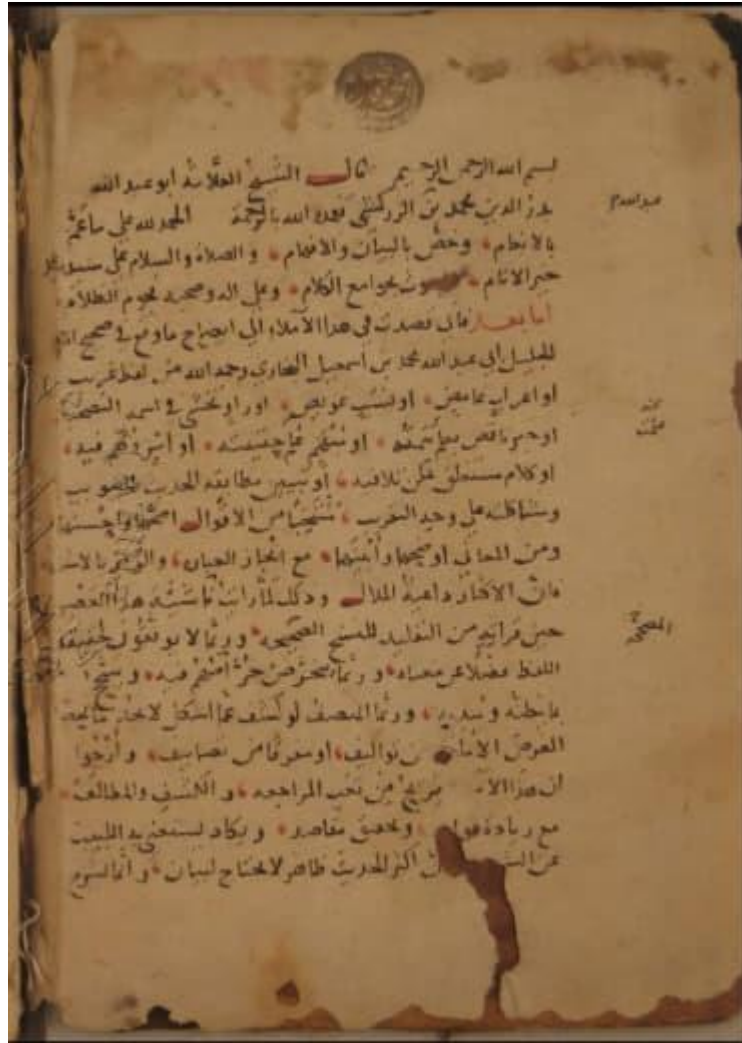 بسم الله الرحمن الرحيم قال الشيخ العلامة ابو عبد الله
بدر الدين محمد بن الزركشي تغمده الله بالرحمة الحمد لله على ما عم
بالانعام وخص بالبيان والافهام والصلاة والسلام على سيدنا محمد
خير الانام بجوامع الكلم وعلى اله وصحبه نجوم الظلام
اما بعد فاني قصدت في هذا الاملاء الى ايضاح ما وقع في صحيح
الجليل ابي عبد الله محمد بن اسمعيل البخاري رحمه الله من لفظ غريب
او اعراب غامض او نسب عويص او راو يخشى في اسمه التصحيف
او خبر ناقص يعلم تتمته او مبهم علم حقيقته او امر وهم فيه
او كلام مستغلق يمكن تلافيه او تبيين مطابقة الحديث للتبويب
ومشاكلته على وجه التقريب منتخبا من الاقوال اصحها واحسنها
ومن المعاني اوضحها وابينها مع ايجاز العبارة والرمز بالاشارة
فان الاكثار داعية الملال وذلك لما رايت ناشئة هذا العصر
حين قراتهم من التقليد للنسخ المصححة وربما لا يوفقون لحقيقة
اللفظ فضلا عن معناه وربما يتخرص خرصا منهم فيه ويتبجح
بما ظنه ويبديه وربما المنصف لو كشف عما اشكل لا يجد ما يحصل
الغرض الا ملفقا من تواليف او متفرقا من تصانيف وارجوا
ان هذا الاملاء يريح من تعب المراجعة والكشف والمطالعة
مع زيادة فوائد وتحقيق مقاصد ويكاد يستغني به اللبيب
عن الشروح لان اكثر الحديث ظاهر لا يحتاج لبيان وانما يشرح
عبد الله
المصححة